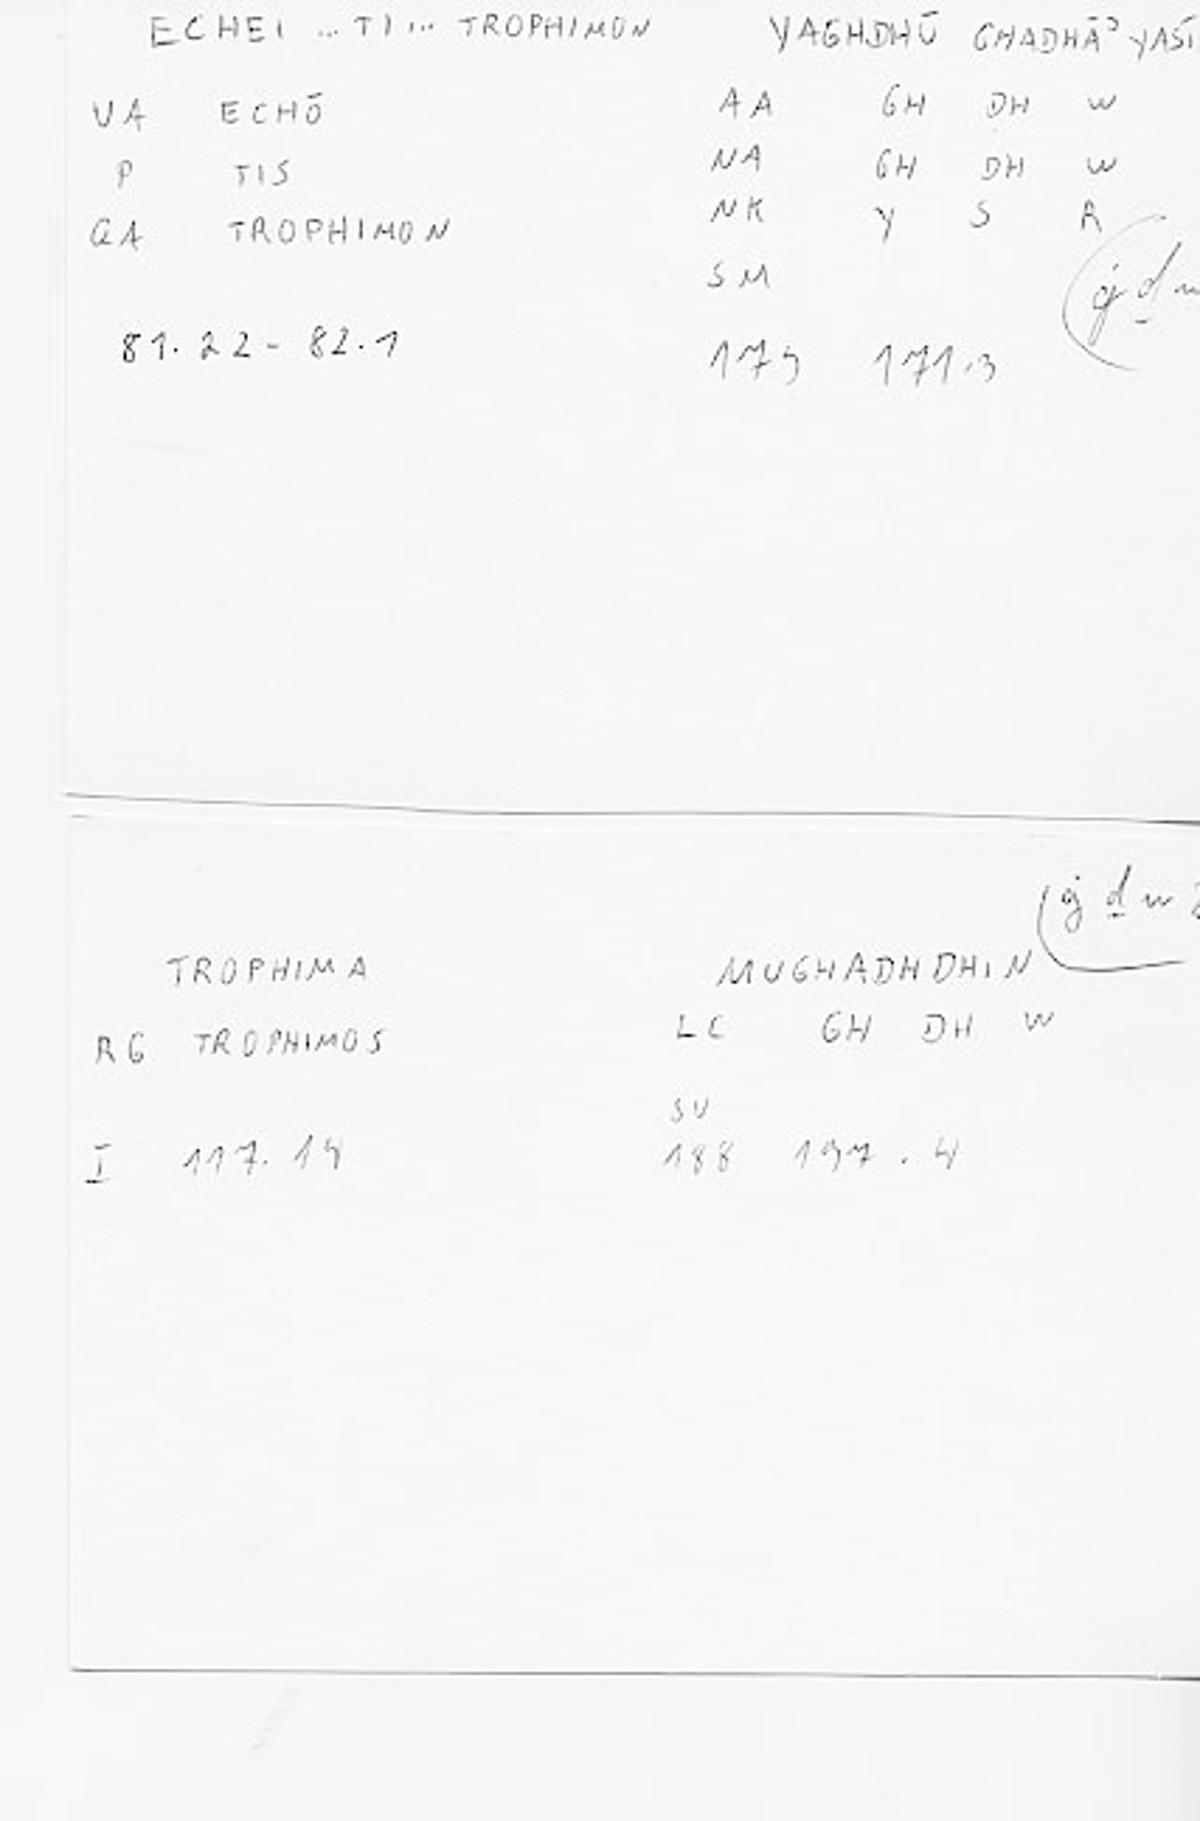 ECHEI ... TI ... TROPHIMON YAGHDHŪ GHADHĀʾ YASĪ
VA ECHŌ AA GH DH W
P TIS NA GH DH W
GA TROPHIMON NK Y S R
SM (ġ ḏ w
81.22 - 82.1 179 171.3
(ġ ḏ w 2
TROPHIMA MUGHADHDHIN
RG TROPHIMOS LC GH DH W
SU
I 117.14 188 197.4